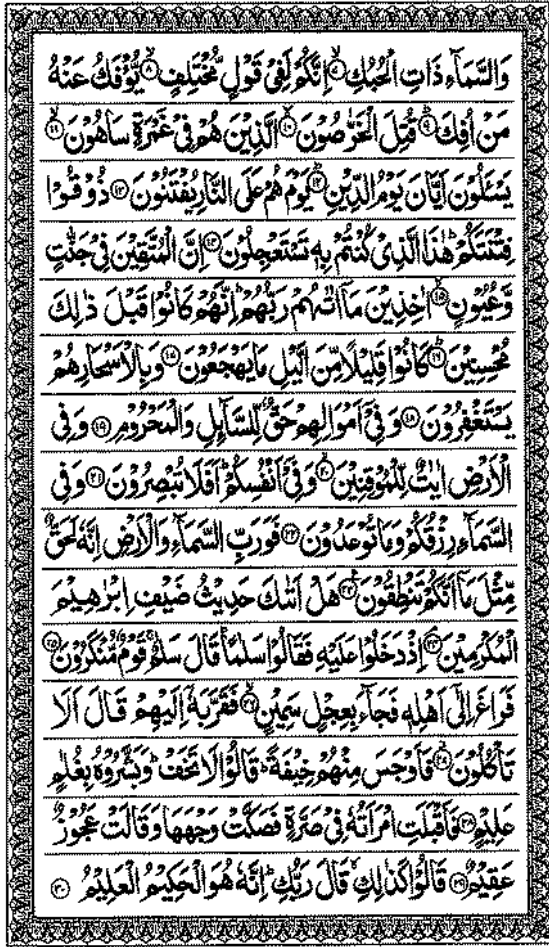 وَالسَّمَآءِ ذَاتِ الْحُبُكِ ۙ﴿۷﴾ اِنَّكُمْ لَفِیْ قَوْلٍ مُّخْتَلِفٍ ۙ﴿۸﴾ یُّؤْفَكُ عَنْهُ
مَنْ اُفِكَ ؕ﴿۹﴾ قُتِلَ الْخَرّٰصُوْنَ ۙ﴿۱۰﴾ الَّذِیْنَ هُمْ فِیْ غَمْرَةٍ سَاهُوْنَ ۙ﴿۱۱﴾
یَسْـَٔلُوْنَ اَیَّانَ یَوْمُ الدِّیْنِ ؕ﴿۱۲﴾ یَوْمَ هُمْ عَلَی النَّارِ یُفْتَنُوْنَ ﴿۱۳﴾ ذُوْقُوْا
فِتْنَتَكُمْ ؕ هٰذَا الَّذِیْ كُنْتُمْ بِهٖ تَسْتَعْجِلُوْنَ ﴿۱۴﴾ اِنَّ الْمُتَّقِیْنَ فِیْ جَنّٰتٍ
وَّعُیُوْنٍ ۙ﴿۱۵﴾ اٰخِذِیْنَ مَاۤ اٰتٰىهُمْ رَبُّهُمْ ؕ اِنَّهُمْ كَانُوْا قَبْلَ ذٰلِكَ
مُحْسِنِیْنَ ؕ﴿۱۶﴾ كَانُوْا قَلِیْلًا مِّنَ الَّیْلِ مَا یَهْجَعُوْنَ ﴿۱۷﴾ وَبِالْاَسْحَارِ هُمْ
یَسْتَغْفِرُوْنَ ﴿۱۸﴾ وَفِیْۤ اَمْوَالِهِمْ حَقٌّ لِّلسَّآىِٕلِ وَالْمَحْرُوْمِ ﴿۱۹﴾ وَفِی
الْاَرْضِ اٰیٰتٌ لِّلْمُوْقِنِیْنَ ۙ﴿۲۰﴾ وَفِیْۤ اَنْفُسِكُمْ ؕ اَفَلَا تُبْصِرُوْنَ ﴿۲۱﴾ وَفِی
السَّمَآءِ رِزْقُكُمْ وَمَا تُوْعَدُوْنَ ﴿۲۲﴾ فَوَرَبِّ السَّمَآءِ وَالْاَرْضِ اِنَّهٗ لَحَقٌّ
مِّثْلَ مَاۤ اَنَّكُمْ تَنْطِقُوْنَ ۠﴿۲۳﴾ هَلْ اَتٰىكَ حَدِیْثُ ضَیْفِ اِبْرٰهِیْمَ
الْمُكْرَمِیْنَ ۘ﴿۲۴﴾ اِذْ دَخَلُوْا عَلَیْهِ فَقَالُوْا سَلٰمًا ؕ قَالَ سَلٰمٌ ۚ قَوْمٌ مُّنْكَرُوْنَ ۚ﴿۲۵﴾
فَرَاغَ اِلٰۤی اَهْلِهٖ فَجَآءَ بِعِجْلٍ سَمِیْنٍ ۙ﴿۲۶﴾ فَقَرَّبَهٗۤ اِلَیْهِمْ قَالَ اَلَا
تَاْكُلُوْنَ ؗ﴿۲۷﴾ فَاَوْجَسَ مِنْهُمْ خِیْفَةً ؕ قَالُوْا لَا تَخَفْ ؕ وَبَشَّرُوْهُ بِغُلٰمٍ
عَلِیْمٍ ﴿۲۸﴾ فَاَقْبَلَتِ امْرَاَتُهٗ فِیْ صَرَّةٍ فَصَكَّتْ وَجْهَهَا وَقَالَتْ عَجُوْزٌ
عَقِیْمٌ ﴿۲۹﴾ قَالُوْا كَذٰلِكِ ۙ قَالَ رَبُّكِ ؕ اِنَّهٗ هُوَ الْحَكِیْمُ الْعَلِیْمُ ﴿۳۰﴾